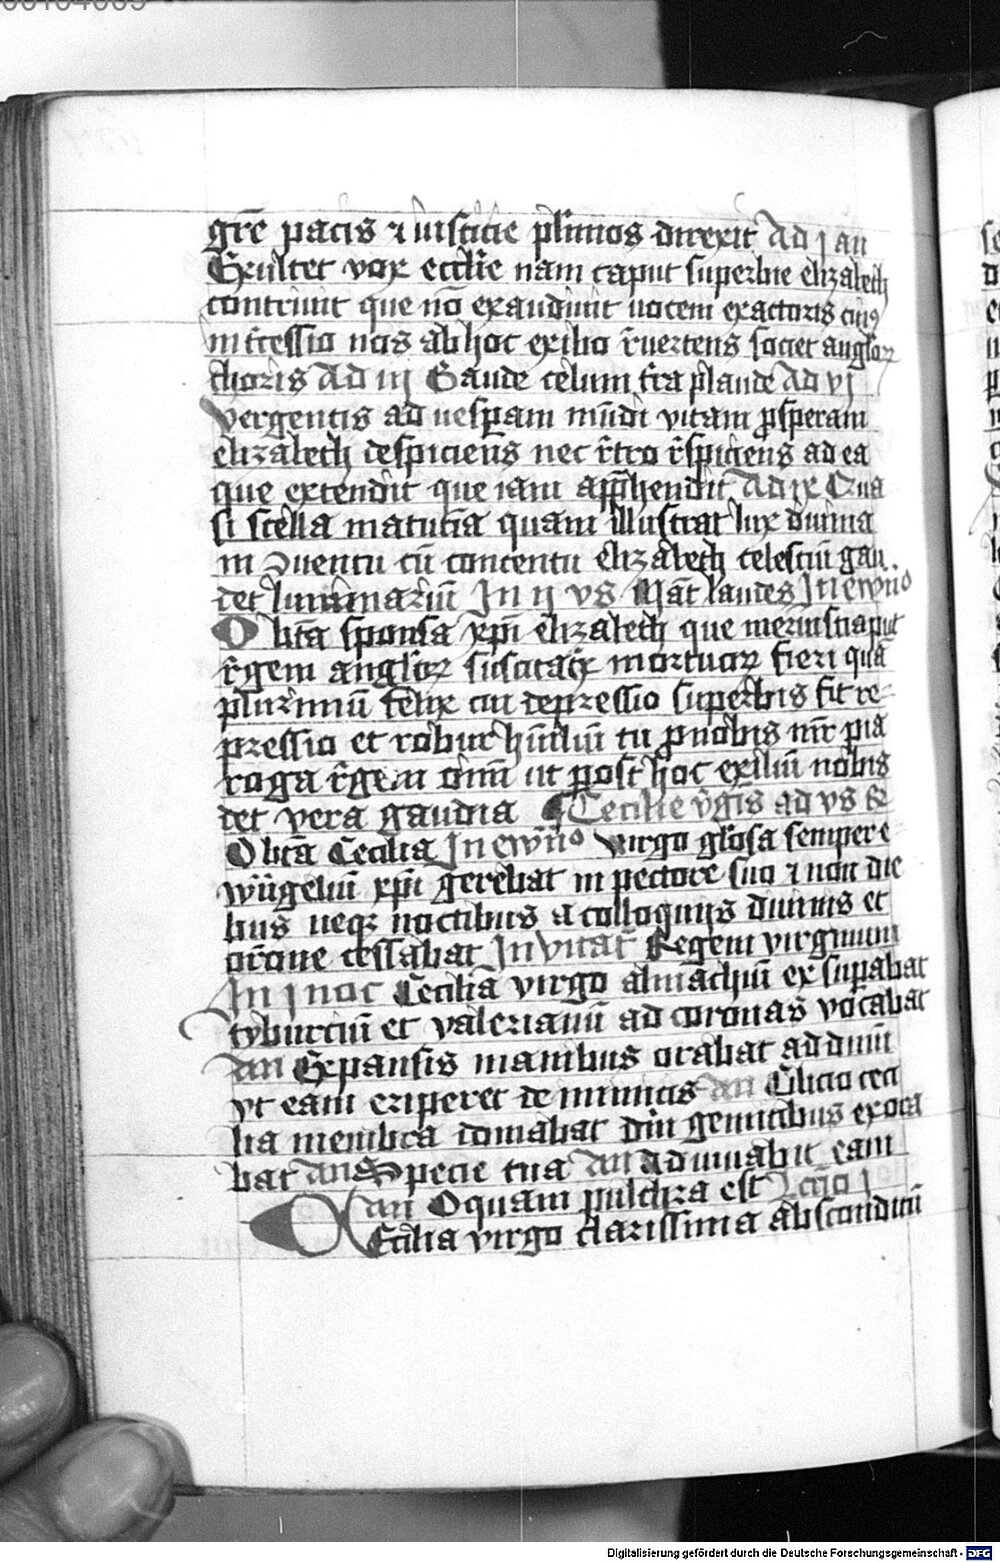 gr̄e pacis ⁊ iusticie pl̄imos direxit Ad j an
Exultet vox eccl̄ie nam caput superbie elizabeth
contriuit que nō exaudiuit uocem exactoris cuiꝯ
int̄cessio nos ab hoc exilio r̄uertens societ angl̄oꝝ
choris Ad iij Gaude celum t̄ra plaude Ad vj
Vergentis ad uesp̄am mūdi vitam ꝓsperam
elizabeth despiciens nec r̄tro r̄spiciens ad ea
que extendit que iam app̄hendit Ad ix Qua
si stella matutīa quam illustrat lux diuina
in Iuentu cū concentu elizabeth celestiū gau
det luminariū In ij vs Mat̄ laudes In ewn̄o
O btā sponsa xp̄i elizabeth que meruisti aput
r̄gem angl̄oꝝ suscitat̄x mortuoꝝ fieri quā
plurimū felix cui depressio superbis fit re-
pressio et robur hūiliū tu ꝓ nobis mr̄ pia
roga r̄gem oīm ut post hoc exiliū nobis
det vera gaudia Cecilie v̄gis ad vs &
O btā Cecilia In ewn̄o virgo gl̄osa semper e
wūgeliū xp̄i gerebat in pectore suo ⁊ non die
bus neqꝫ noctibus a colloquijs diuinis et
or̄one cessabat Invitat̄ Regem virginum
In j noc Cecilia virgo almachiū exsuꝑabat
tyburciū et valerianū ad coronas vocabat
an Expansis manibus orabat ad dn̄m
vt eam eriperet de inimicis an Cilicio ceci
lia membra domabat dm̄ gemitibus exora
bat an Specie tua an Adiuuabit eam
an O quam pulchra est Lc̄o j
Cecilia virgo clarissima absconditū